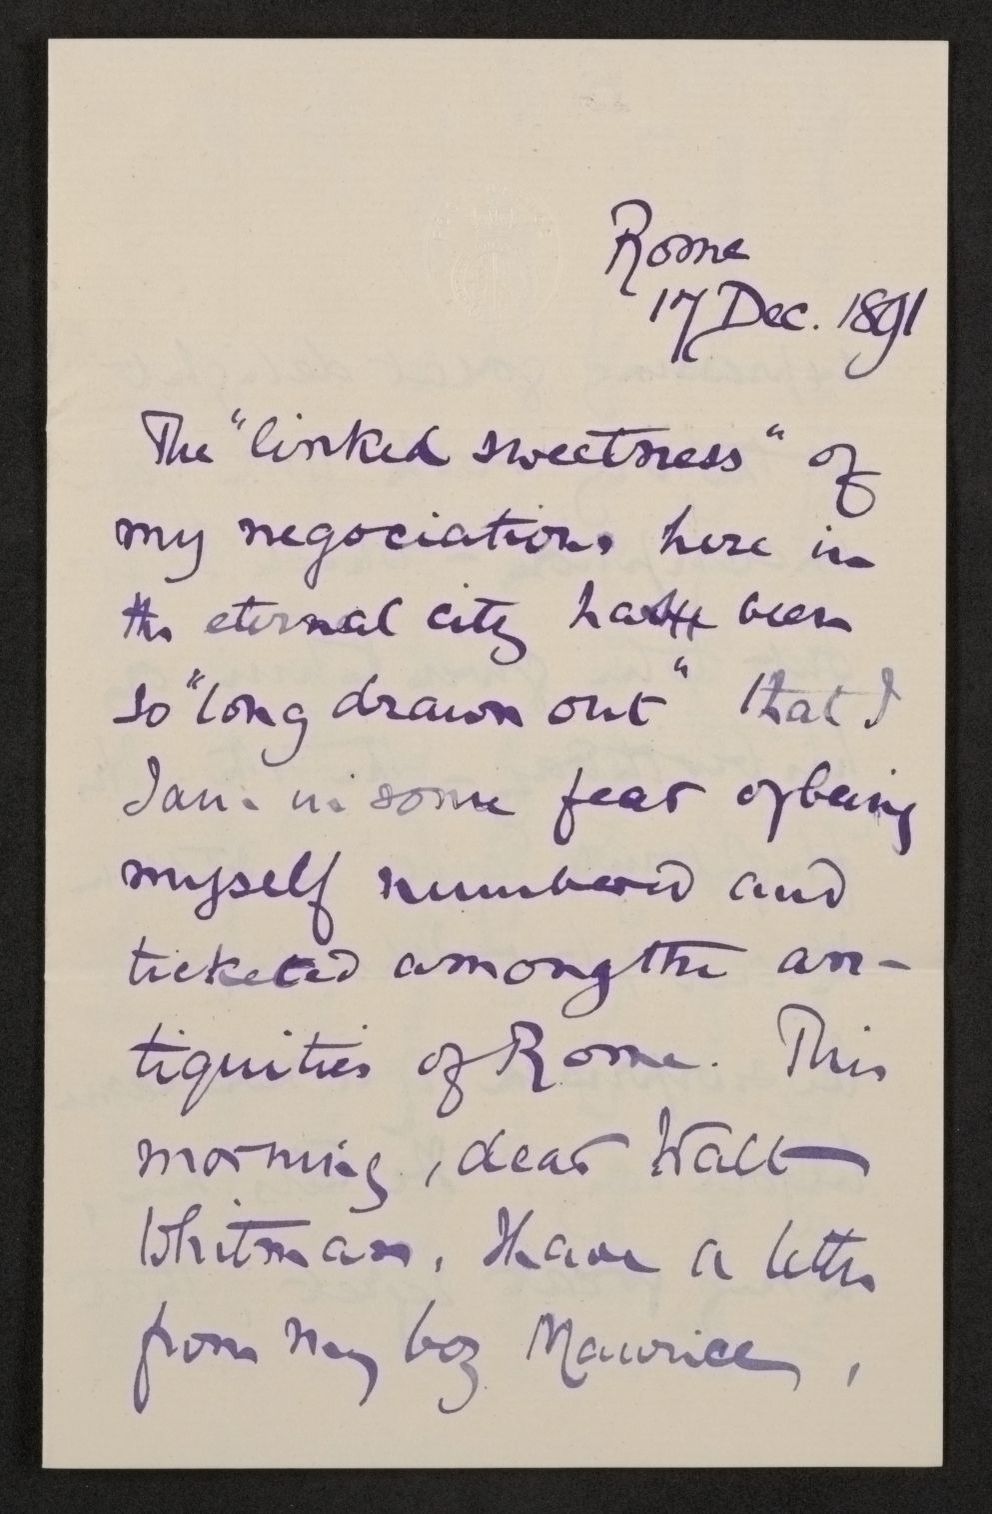 Rome
17 Dec. 1891
The "linked sweetness" of
my negociations here in
the eternal city has been
so "long drawn out" that I
I am in some fear of being
myself numbered and
ticketed among the an-
tiquities of Rome. This
morning, dear Walt
Whitman, I have a letter
from my boy Maurice,